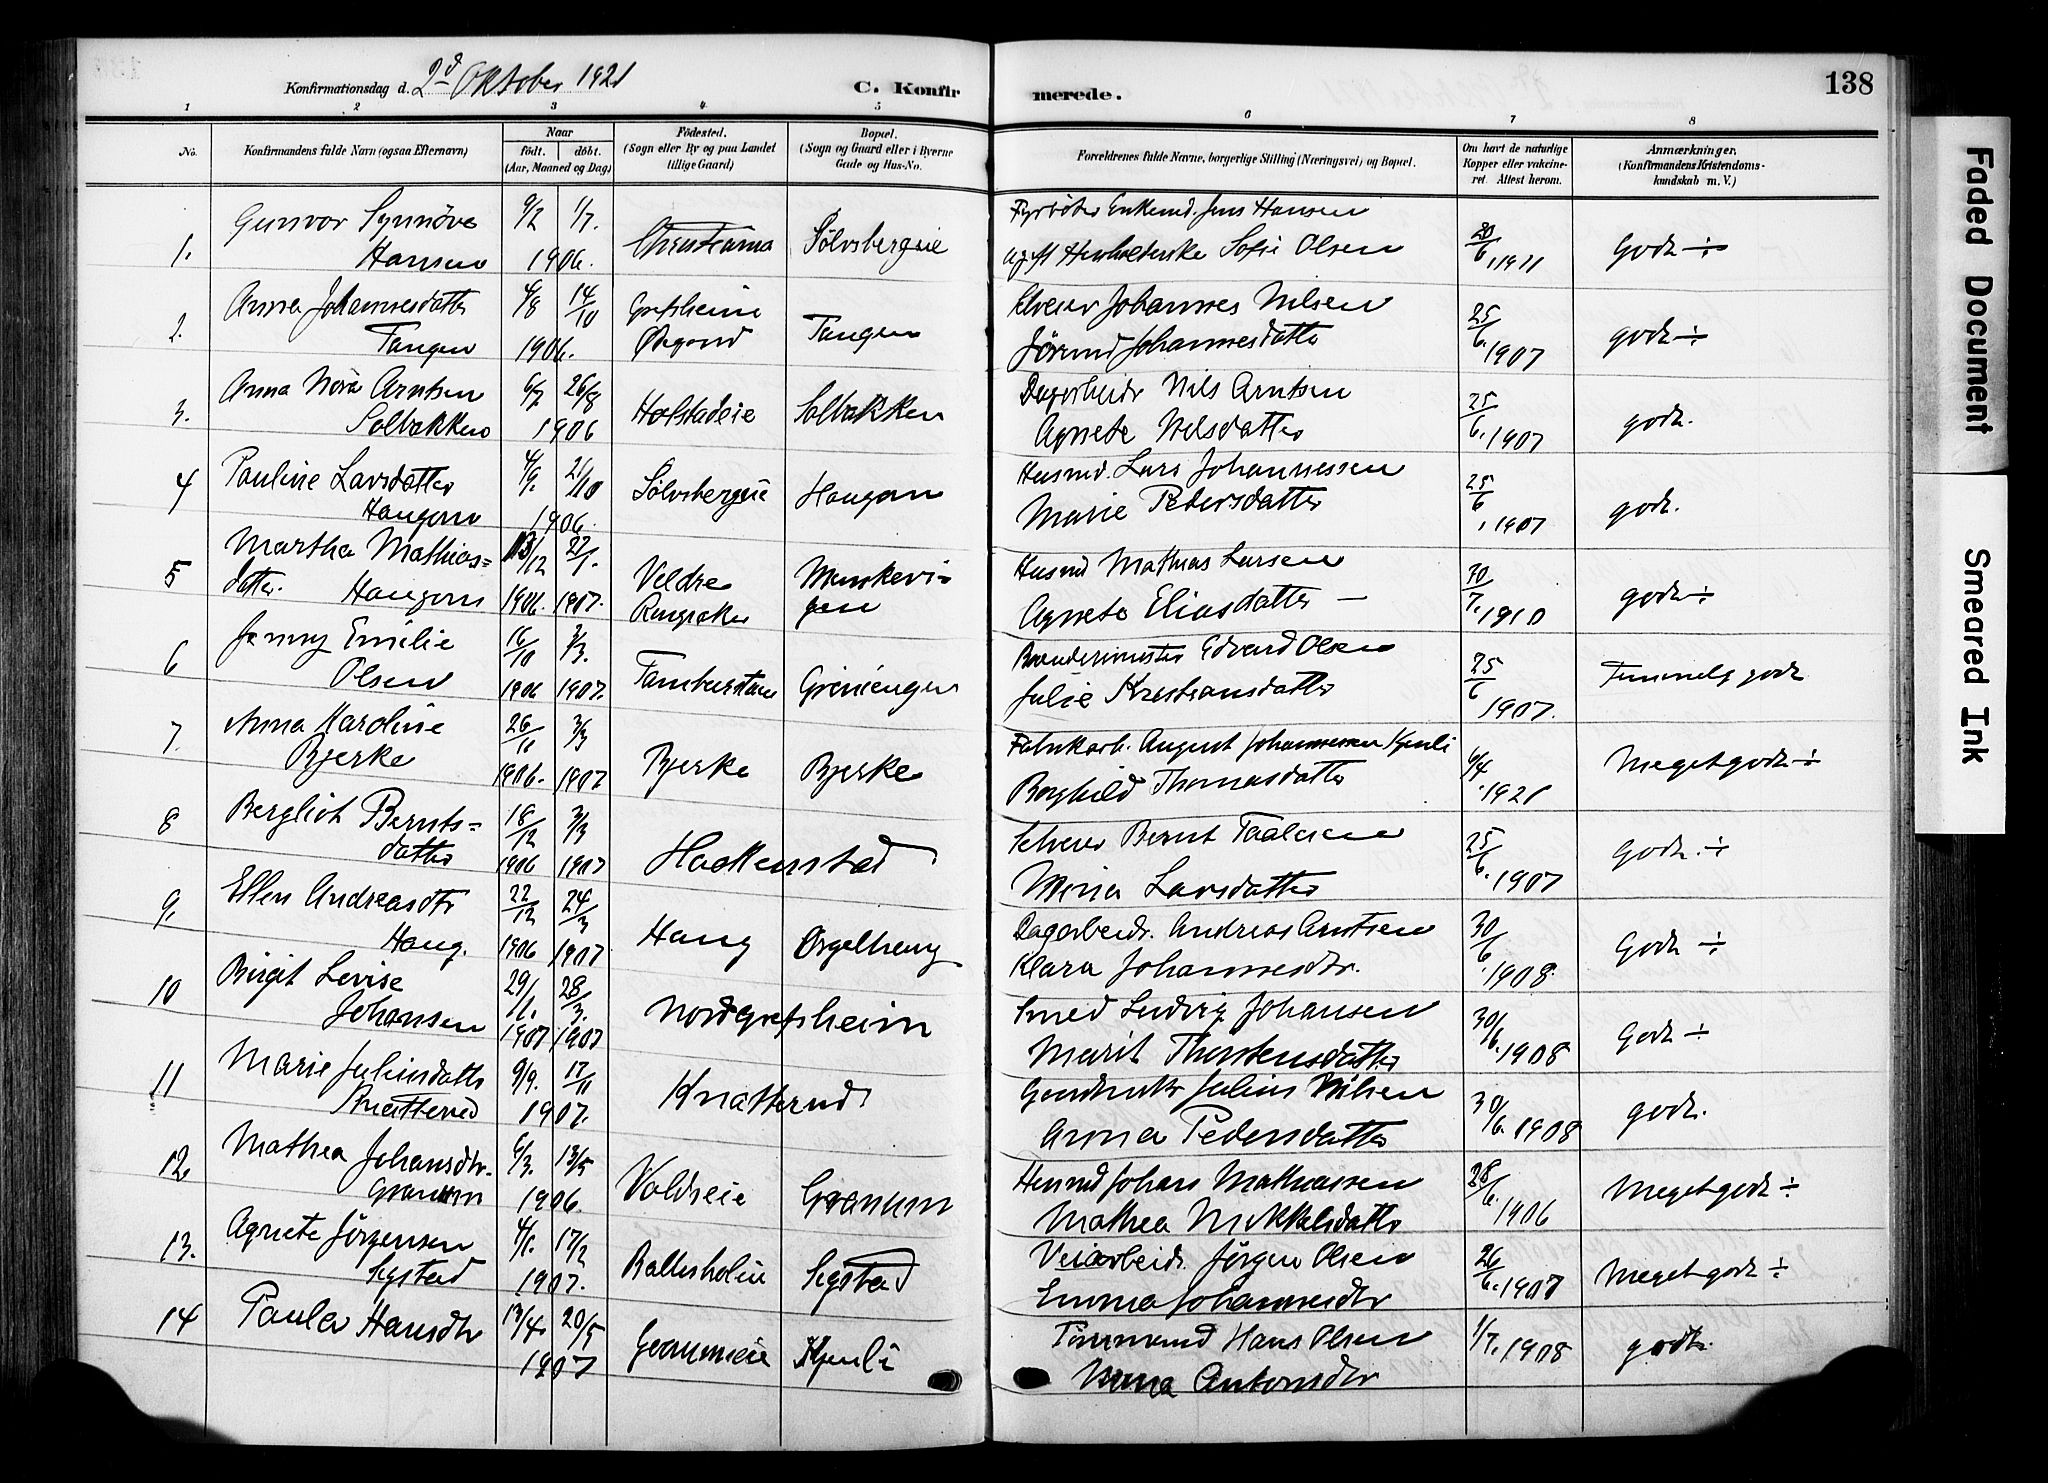 Konfirmationsdag d. 2d Oktober 1921
C. Konfirmerede.
138
1 2 3 4 5 6 7 8
No.
Konfirmandens fulde Navn (ogsaa Efternavn)
Naar
født. døbt.
(Aar, Maaned og Dag)
Fødested.
(Sogn eller By og paa Landet
tillige Gaard)
Bopæl.
(Sogn og Gaard eller i Byerne
Gade og Hus-No.
Forældrenes fulde Navne, borgerlige Stilling (Næringsvei) og Bopæl.
Om havt de naturlige
Kopper eller vakcineret
Attest herom.
Anmærkninger,
(Konfirmandens Kristendomskundskab
m. V.)
1. Gunvor Synnöve
Hansen
9/2 1/7.
1906.
Christiania
Sølvsbergeie
Fyrbøter Enkemd. Jens Hansen
ugift Sofie Olsen
20/6. 1911
Godt ÷
2. Anna Johannesdatter
Tangen
4/8 14/10
1906.
Grefsheim
Ødegaard
Tangen
Selveier Johannes Nilsen
Jørund Johannesdatter
25/6. 1907
godt ÷
3. Anna Nora Arntsen
Solbakken
6/7 26/8
1906
Hofstadeie
Solbakken
Dagarbeidr Nils Arntsen
Agnete Nilsdatter
25/6. 1907
godt.
4 Pauline Larsdatter
Haugom
4/9. 21/10
1906.
Sølvsbergeie
Haugom
Husmd. Lars Johannessen
Marie Pedersdatter
25/6. 1907
godt.
5 Martha Mathiasdatter.
Haugom
13/12 27/1.
1906. 1907.
Veldre
Ringsaker
Husmd Mathias Larsen
Agnete Eliasdatter
30/7. 1910
godt ÷
6 Jenny Emilie
Olsen
16/10 3/3.
1906 1907.
Grønengen
Edvard Olsen
Julie Kristiansdatter
25/6 1907.
Temmelig godt
7. Anna Karoline
Bjerke
26/11 3/3
1906. 1907
Bjerke
Bjerke
Fabrikarb. August Johannessen Kjenli
Borghild Thomasdatter
6/4. 1921
Meget godt ÷
8 Bergliot Berntsdatter
18/12 3/3
1906 1907
Hackenstad
Selveier Bernt Paalsen
Mina Larsdatter
25/6. 1907
Godt. ÷
9. Ellen Andreasdtr
Haug.
22/12 24/3
1906 1907
Haug
Ørgelhaug
Dagarbeidr. Andreas Arntsen
Klara Johannesdtr.
30/6. 1908.
Godt ÷
10 Birgit Lovise
Johansen
29/1. 28/3.
1907 1907
Nordgrefsheim
Smed Ludvig Johansen
Marit Thorstensdatter
30/6. 1908
Godt ÷
11 Marie Juliusdatter
Knatterud
9/9. 17/11
1907.
Knatterud
Gaardbruker Julius Nilsen
Anna Pedersdatter
30/6. 1908
godt.
12. Mathea Johansdtr.
Granum
6/3. 13/5
1906.
Valdseie
Granum
Husmd Johan Mathiassen
Mathea Mikkelsdatter
28/6. 1906
Meget godt ÷
13. Agnete Jørgensen
Segstad
4/1. 17/2
1907.
Ballesholeie
Segstad
Veiarbeidr. Jørgen Olsen
Emma Johannesdtr
26/6. 1907
Meget godt ÷
14 Paula Hansdtr
13/4. 20/5
1907
Granumeie
Kjenli
Tømmermd Hans Olsen
Antonsdtr
1/7. 1908
godt.
Faded Document
Smeared Ink